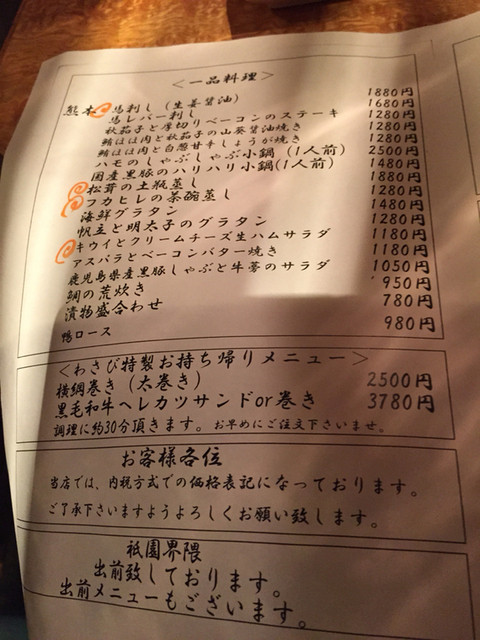 <一品料理>
熊本 馬刺し(生姜醤油) 1880円
馬レバー刺し 1680円
秋茄子と厚切りベーコンのステーキ 1280円
鮪ほほ肉と秋茄子の山葵醤油焼き 1280円
鮪ほほ肉と白葱甘辛しょうが焼き 1280円
ハモのしゃぶしゃぶ小鍋(1人前) 2500円
国産黒豚のハリハリ小鍋(1人前) 1480円
松茸の土瓶蒸し 1880円
フカヒレの茶碗蒸し 1280円
海鮮グラタン 1480円
帆立と明太子のグラタン 1280円
キウイとクリームチーズ生ハムサラダ 1180円
アスパラとベーコンバター焼き 1180円
鹿児島県産黒豚しゃぶと牛蒡のサラダ 1050円
鯛の荒炊き 950円
漬物盛合わせ 780円
鴨ロース 980円
<わさび特製お持ち帰りメニュー>
横綱巻き(太巻き) 2500円
黒毛和牛ヘレカツサンドor巻き 3780円
調理に約30分頂きます。お早めにご注文下さいませ。
お客様各位
当店では、内税方式での価格表記になっております。
ご了承下さいますようよろしくお願い致します。
祇園界隈
出前致しております。
出前メニューもございます。